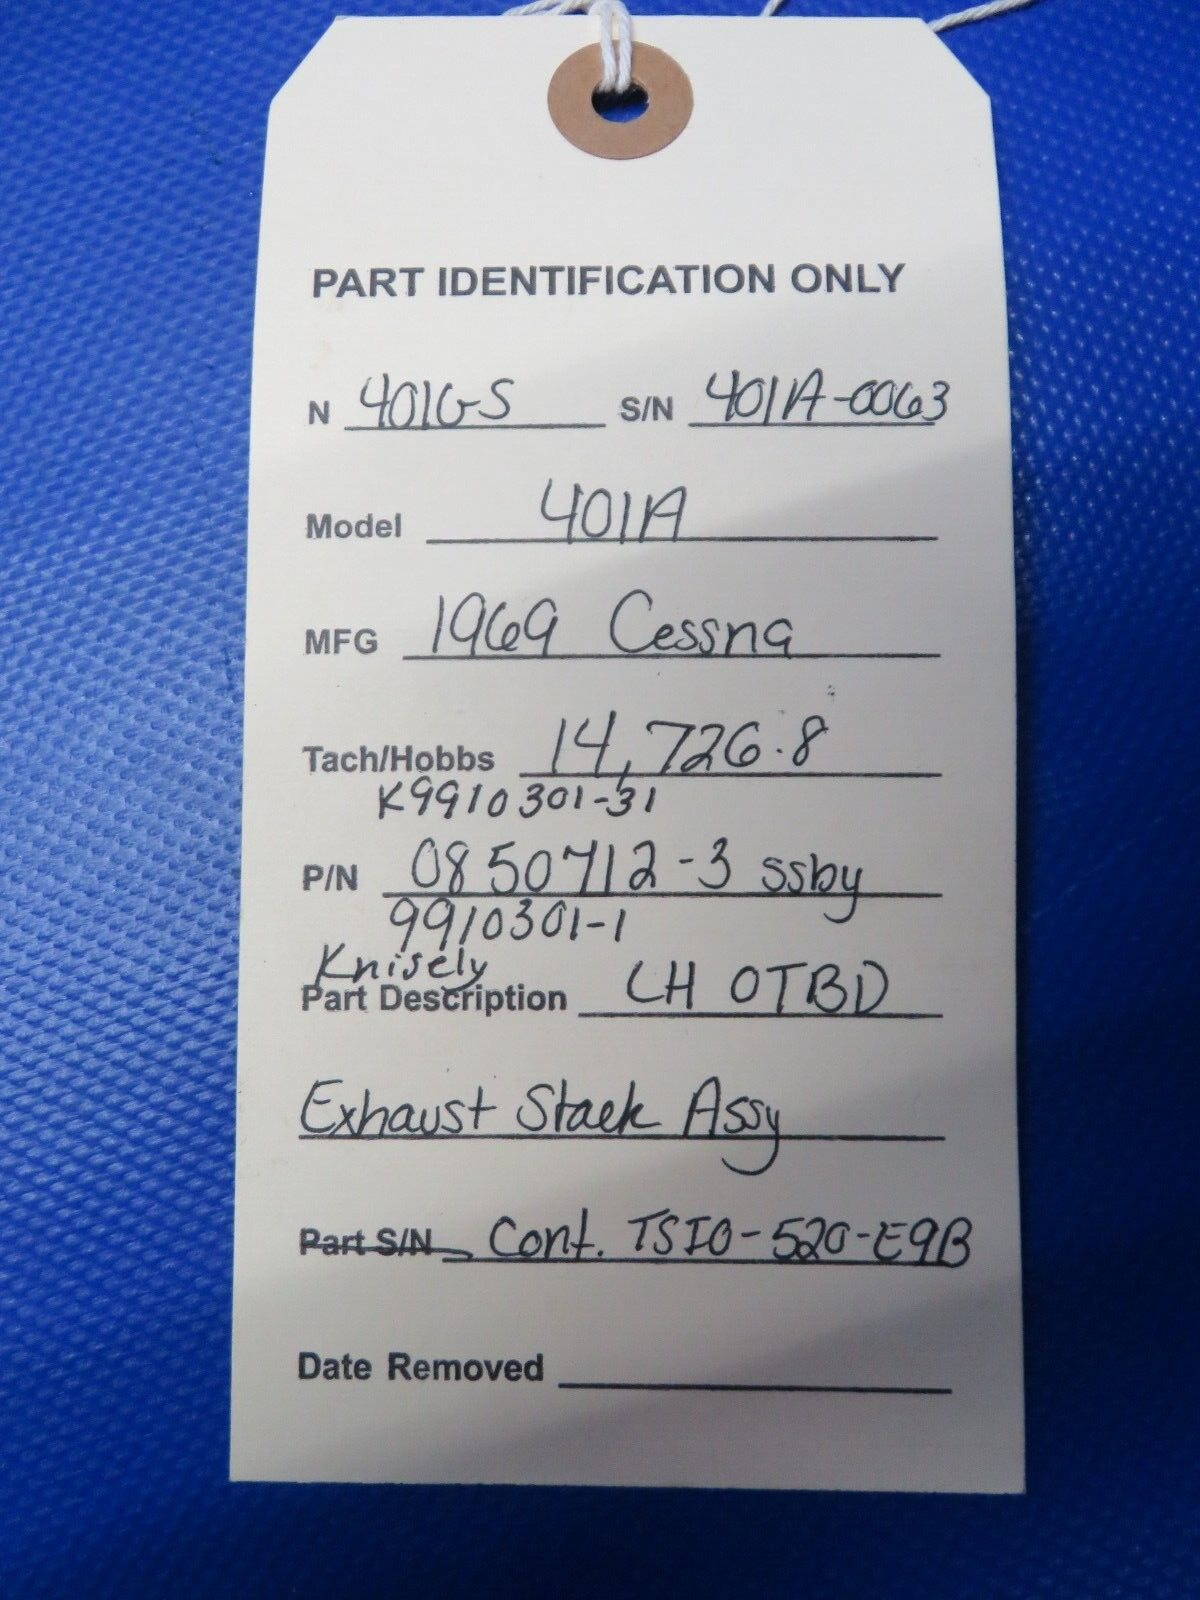 PART IDENTIFICATION ONLY
N 401GS S/N 401A-0063
Model 401A
MFG 1969 Cessna
Tach/Hobbs 14,726.8
K9910301-31
P/N 0850712-3 ssby
9910301-1
Knisely
Part Description LH OTBD
Exhaust Stack Assy
Part S/N Cont. TSIO-520-E9B
Date Removed